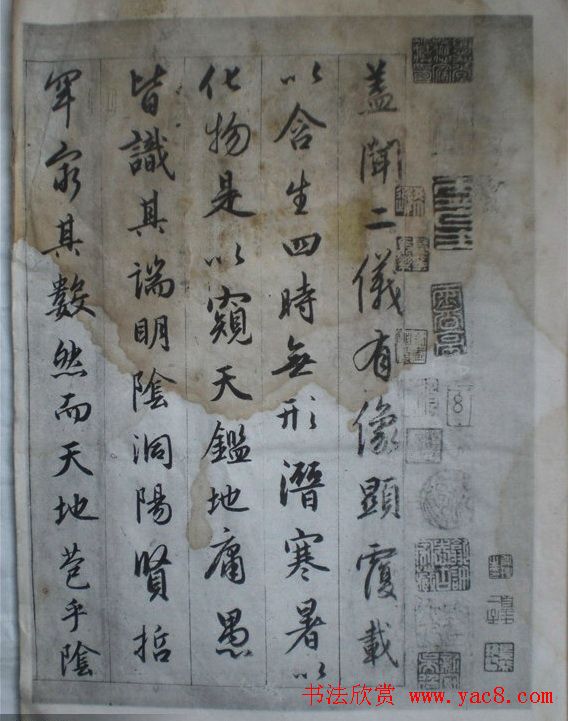 盖聞二儀有像顯覆載
以含生四時無形潛寒暑以
化物是以窺天鑑地庸愚
皆識其端明陰洞陽賢哲
罕窮其數然而天地苞乎陰
书法欣赏 www.yac8.com